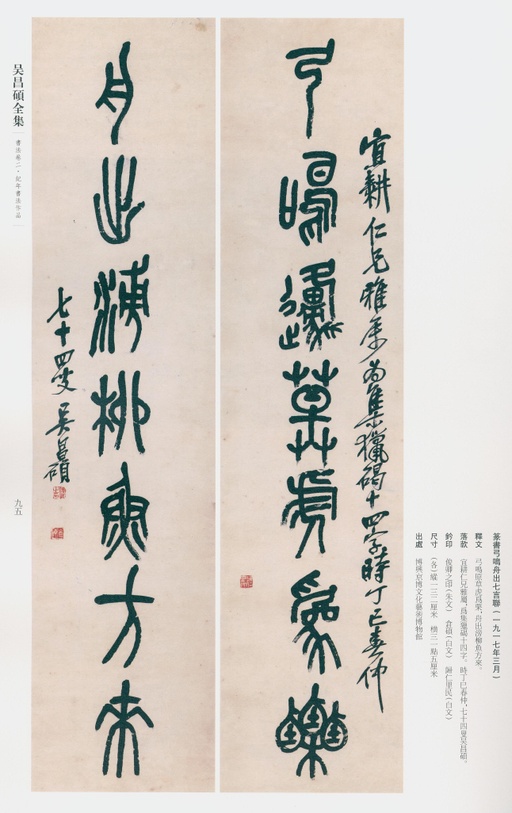 篆書弓鳴舟出七言聯(一九一七年三月)
釋文 弓鳴原草虎爲,舟出柳魚方來。
落款 宜耕仁兄雅屬,爲集獵碣十四字。時丁巳春仲,七十四叟吳昌碩。
鈐印 俊卿之印(朱文) 倉碩(白文) 歸仁里民(白文)
尺寸 (各)縱一三二厘米 橫三一點五厘米
出處 博興京博文化藝術博物館
宜耕仁兄雅屬爲集獵碣十四字時丁巳春仲
弓鳴邍草虎爲
舟出柳魚方來
七十四叟吳昌碩
吴昌碩全集
書法卷二·紀年書法作品
九五